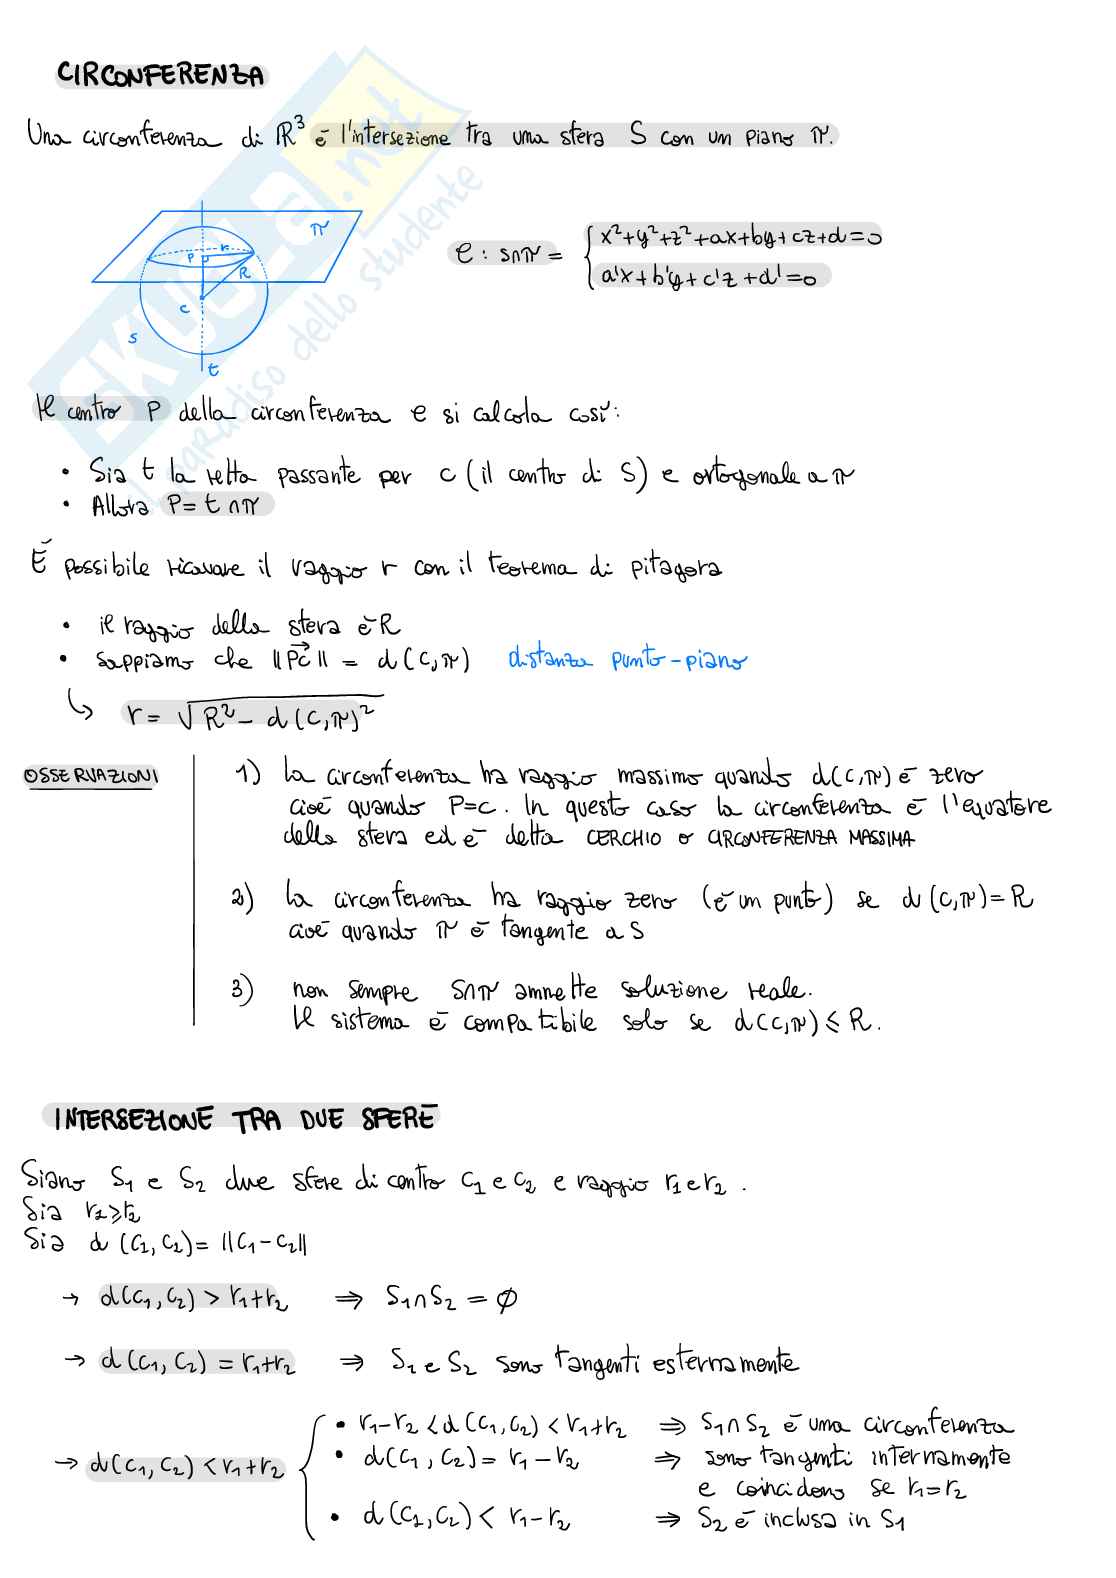 CIRCONFERENZA
Una circonferenza di ℝ³ è l'intersezione tra una sfera S con un piano π.
π
P r
R
C
S
t
C : S∩π = { x²+y²+z²+ax+by+cz+d=0
a'x+b'y+c'z+d'=0
Il centro P della circonferenza C si calcola così:
• Sia t la retta passante per C (il centro di S) e ortogonale a π
• Allora P = t∩π
È possibile ricavare il raggio r con il teorema di pitagora
• il raggio della sfera è R
• sappiamo che ||PC|| = d(C,π) distanza punto-piano
↳ r = √(R² - d(C,π)²)
OSSERVAZIONI
1) la circonferenza ha raggio massimo quando d(C,π) è zero
cioè quando P=C. In questo caso la circonferenza è l'equatore
della sfera ed è detta CERCHIO o CIRCONFERENZA MASSIMA
2) la circonferenza ha raggio zero (è un punto) se d(C,π)=R
cioè quando π è tangente a S
3) non sempre S∩π ammette soluzione reale.
Il sistema è compatibile solo se d(C,π) ≤ R.
INTERSEZIONE TRA DUE SFERE
Siano S₁ e S₂ due sfere di centro C₁ e C₂ e raggio r₁ e r₂.
Sia r₁≥r₂
Sia d(C₁,C₂) = ||C₁-C₂||
→ d(C₁,C₂) > r₁+r₂ ⇒ S₁∩S₂ = ∅
→ d(C₁,C₂) = r₁+r₂ ⇒ S₁ e S₂ sono tangenti esternamente
→ d(C₁,C₂) < r₁+r₂ { • r₁-r₂ < d(C₁,C₂) < r₁+r₂ ⇒ S₁∩S₂ è una circonferenza
• d(C₁,C₂) = r₁-r₂ ⇒ sono tangenti internamente
e coincidono se r₁=r₂
• d(C₁,C₂) < r₁-r₂ ⇒ S₂ è inclusa in S₁
SKUOLA.net
il paradiso dello studente